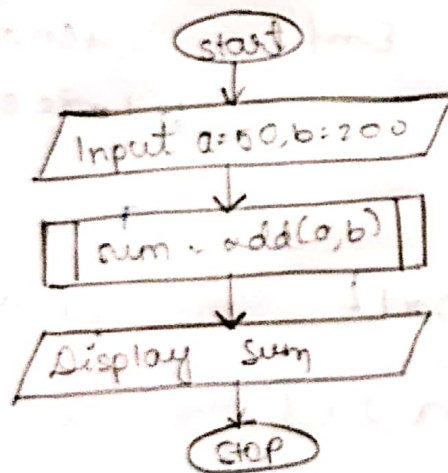 start
Input a=50,b=200
sum = add(a,b)
Display sum
stop